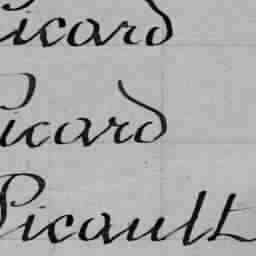 Picard
Picard
Picault